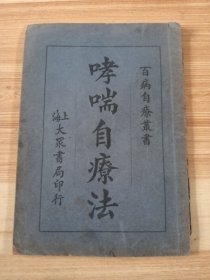 百病自療叢書
哮喘自療法
上海大眾書局印行